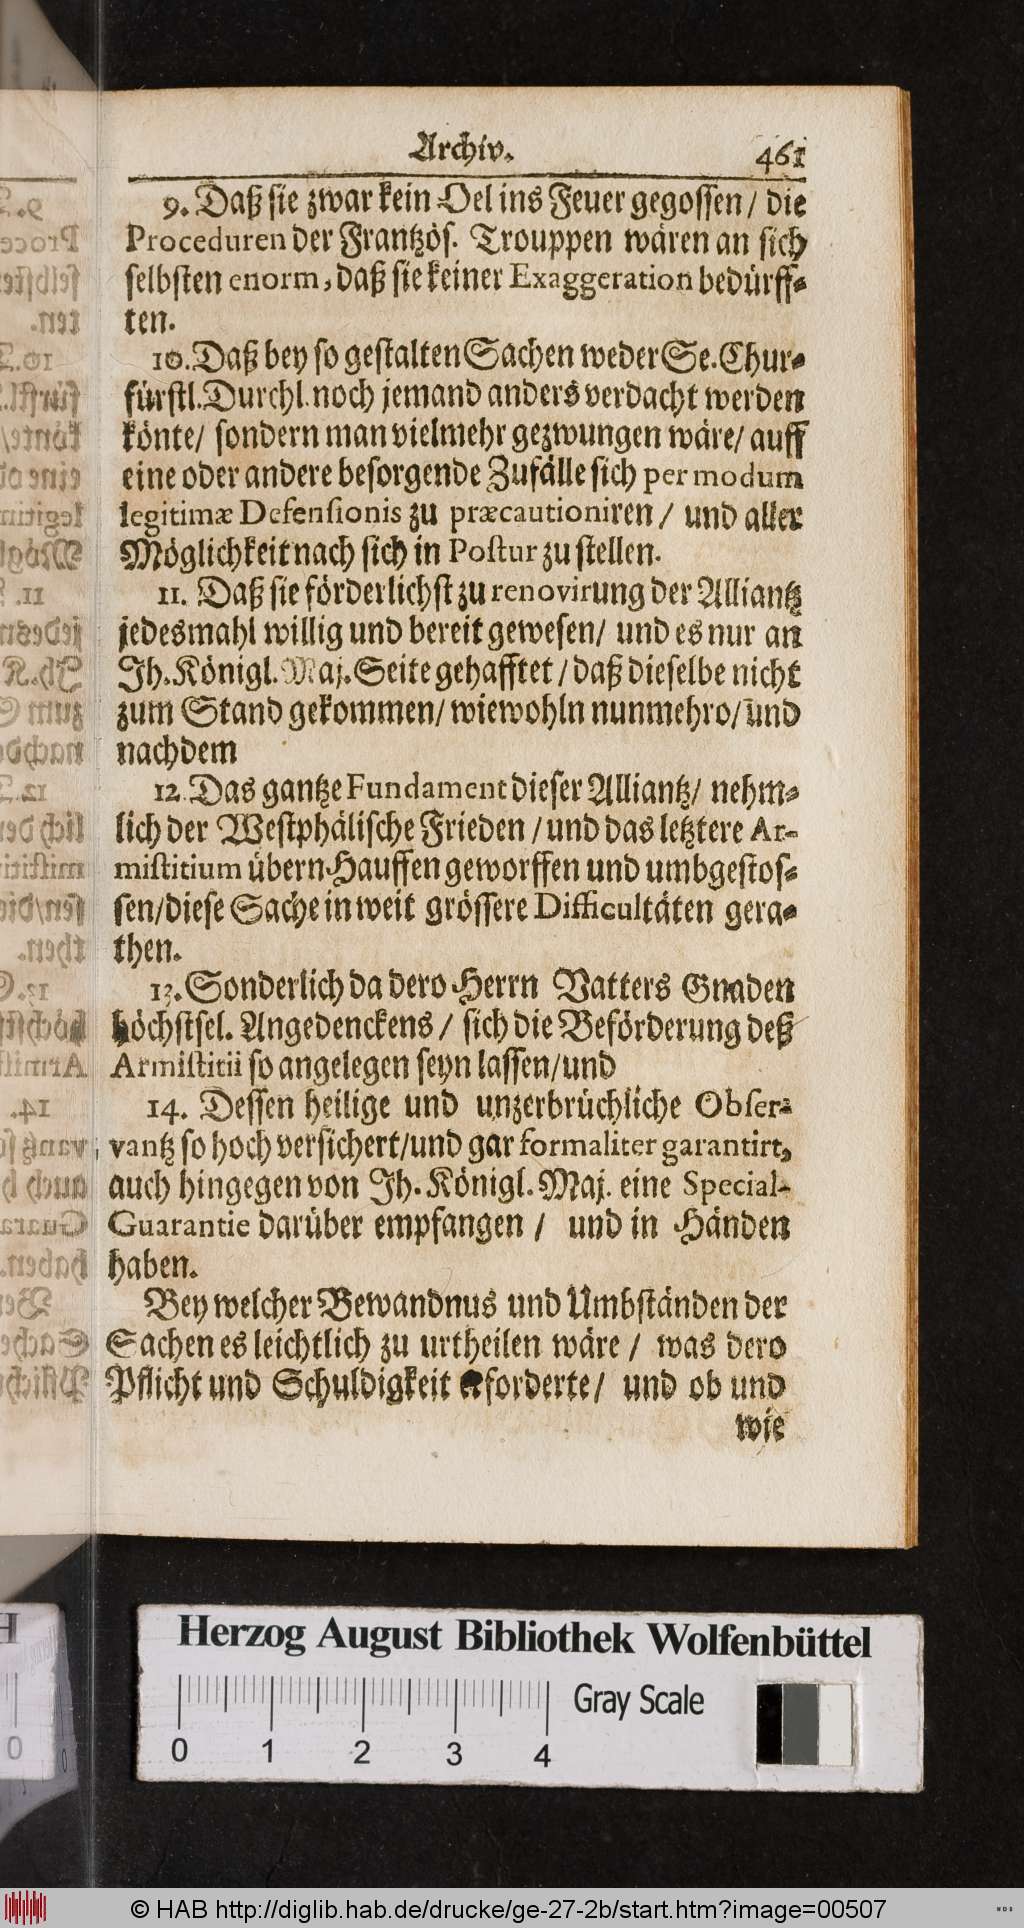 Archiv. 461
9. Daß sie zwar kein Oel ins Feuer gegossen / die
Proceduren der Frantzös. Trouppen wären an sich
selbsten enorm, daß sie keiner Exaggeration bedürff-
ten.
10. Daß bey so gestalten Sachen weder Se. Chur-
fürstl. Durchl. noch jemand anders verdacht werden
könte / sondern man vielmehr gezwungen wäre / auff
eine oder andere besorgende Zufälle sich per modum
legitimæ Defensionis zu præcautioniren / und aller
Möglichkeit nach sich in Postur zu stellen.
11. Daß sie förderlichst zu renovirung der Alliantz
jedesmahl willig und bereit gewesen / und es nur an
Ih. Königl. Maj. Seite gehafftet / daß dieselbe nicht
zum Stand gekommen / wiewohln nunmehro / und
nachdem
12. Das gantze Fundament dieser Alliantz / nehm-
lich der Westphälische Frieden / und das letztere Ar-
mistitium übern Hauffen geworffen und umbgestos-
sen / diese Sache in weit grössere Difficultäten gera-
then.
13. Sonderlich da dero Herrn Vatters Gnaden
höchstsel. Angedenckens / sich die Beförderung deß
Armistitii so angelegen seyn lassen / und
14. Dessen heilige und unzerbrüchliche Obser-
vantz so hoch versichert / und gar formaliter garantirt,
auch hingegen von Ih. Königl. Maj. eine Special-
Guarantie darüber empfangen / und in Händen
haben.
Bey welcher Bewandnus und Umbständen der
Sachen es leichtlich zu urtheilen wäre / was dero
Pflicht und Schuldigkeit erforderte / und ob und
wie
Herzog August Bibliothek Wolfenbüttel
Gray Scale
0 1 2 3 4
© HAB http://diglib.hab.de/drucke/ge-27-2b/start.htm?image=00507